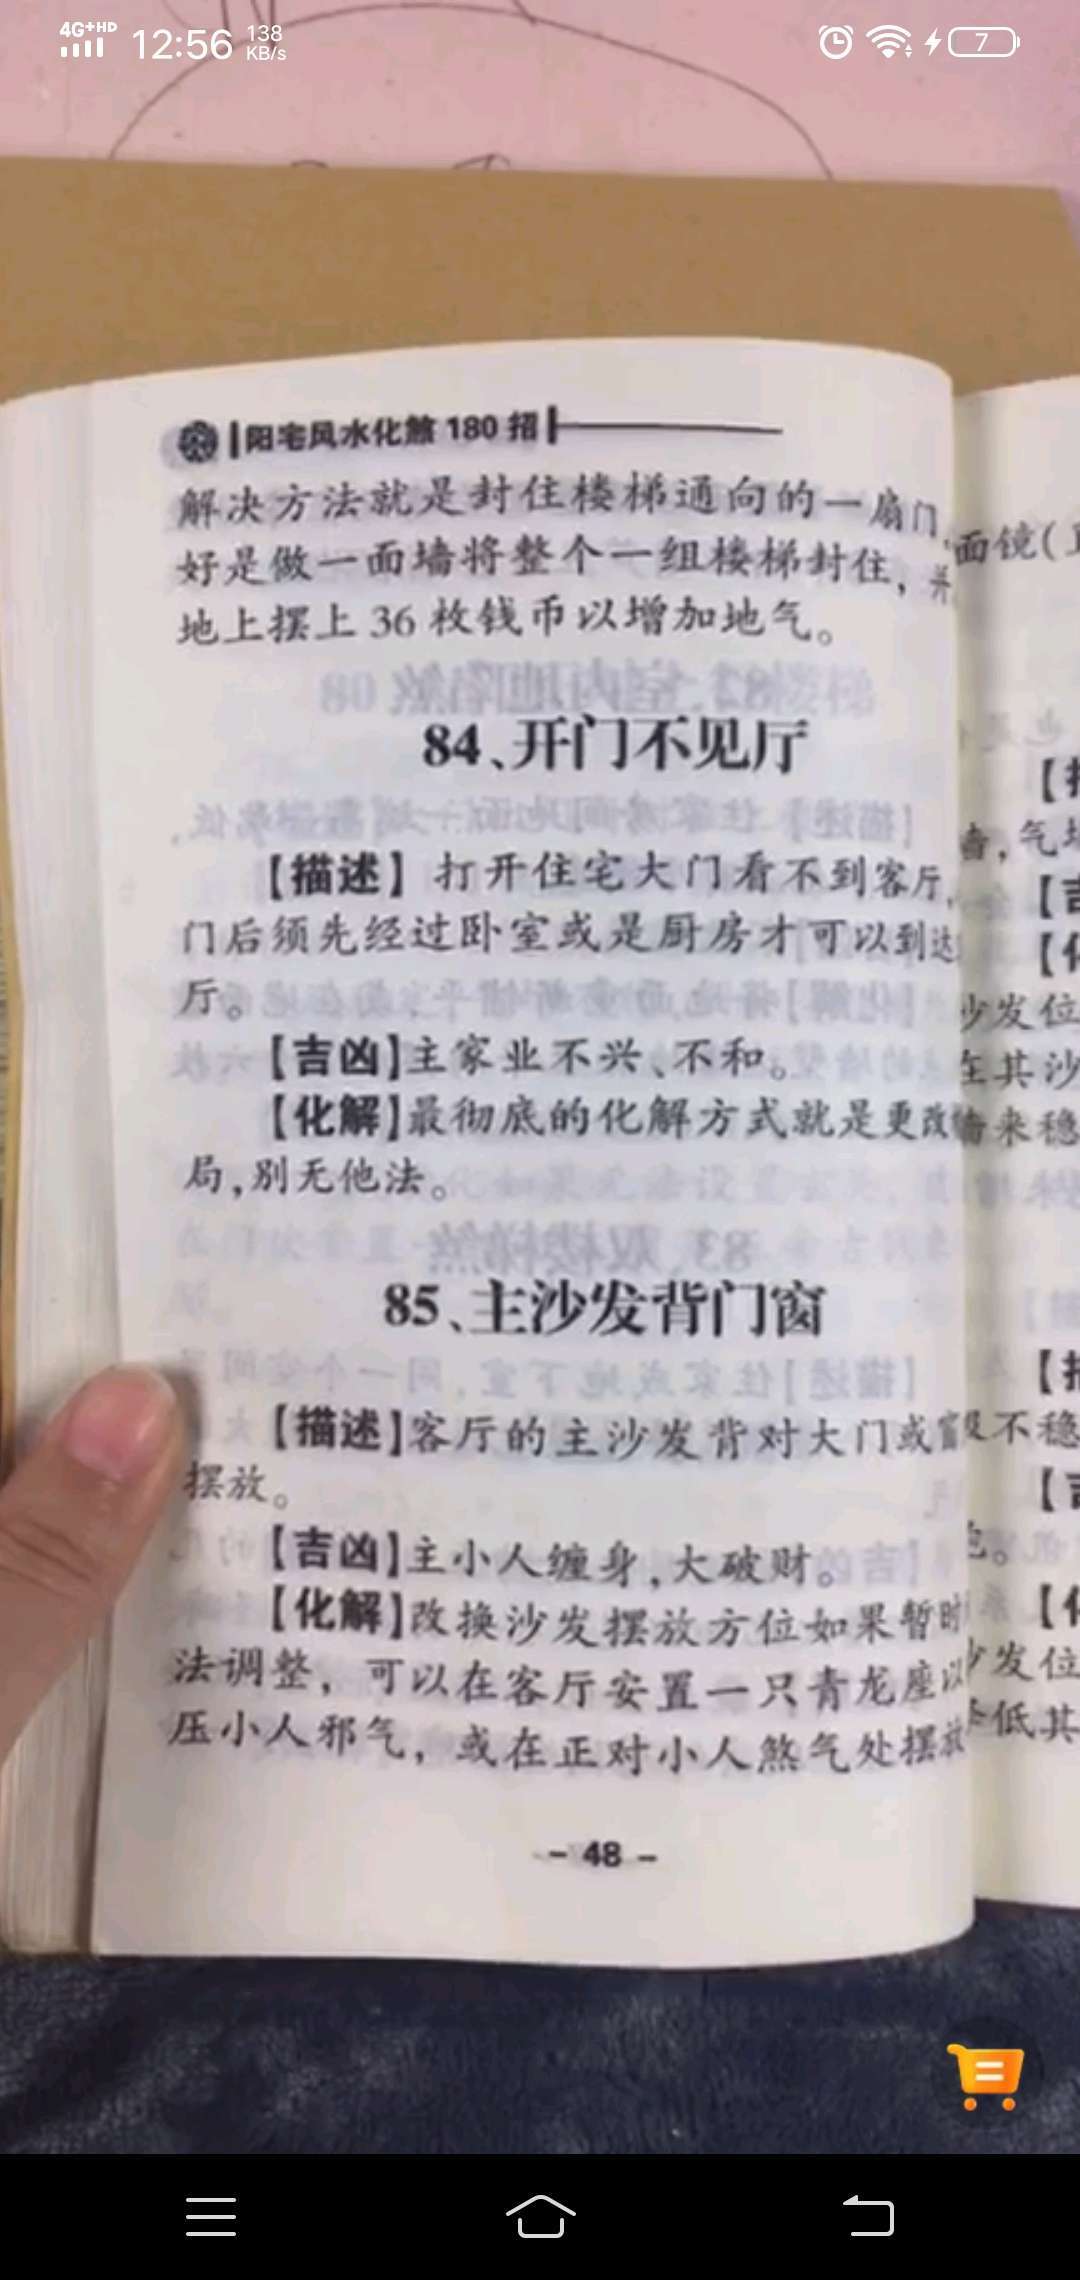 4G+HD 12:56 138 KB/s 7
阳宅风水化煞 180 招
解决方法就是封住楼梯通向的一扇门,
好是做一面墙将整个一组楼梯封住，并
地上摆上 36 枚钱币以增加地气。
84、开门不见厅
【描述】打开住宅大门看不到客厅,
门后须先经过卧室或是厨房才可以到达
厅。
【吉凶】主家业不兴、不和。
【化解】最彻底的化解方式就是更改
局,别无他法。
85、主沙发背门窗
【描述】客厅的主沙发背对大门或窗
摆放。
【吉凶】主小人缠身,大破财。
【化解】改换沙发摆放方位如果暂时
法调整，可以在客厅安置一只青龙座以
压小人邪气，或在正对小人煞气处摆放
- 48 -
面镜(
【
,气
【吉
【化
沙发位
在其沙
来稳
【
不稳
【吉
【化
发位
低其